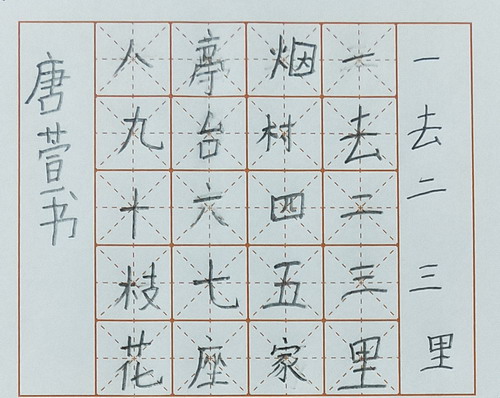 一去二三里
一去二三里
烟村四五家
亭台六七座
八九十枝花
唐萱书